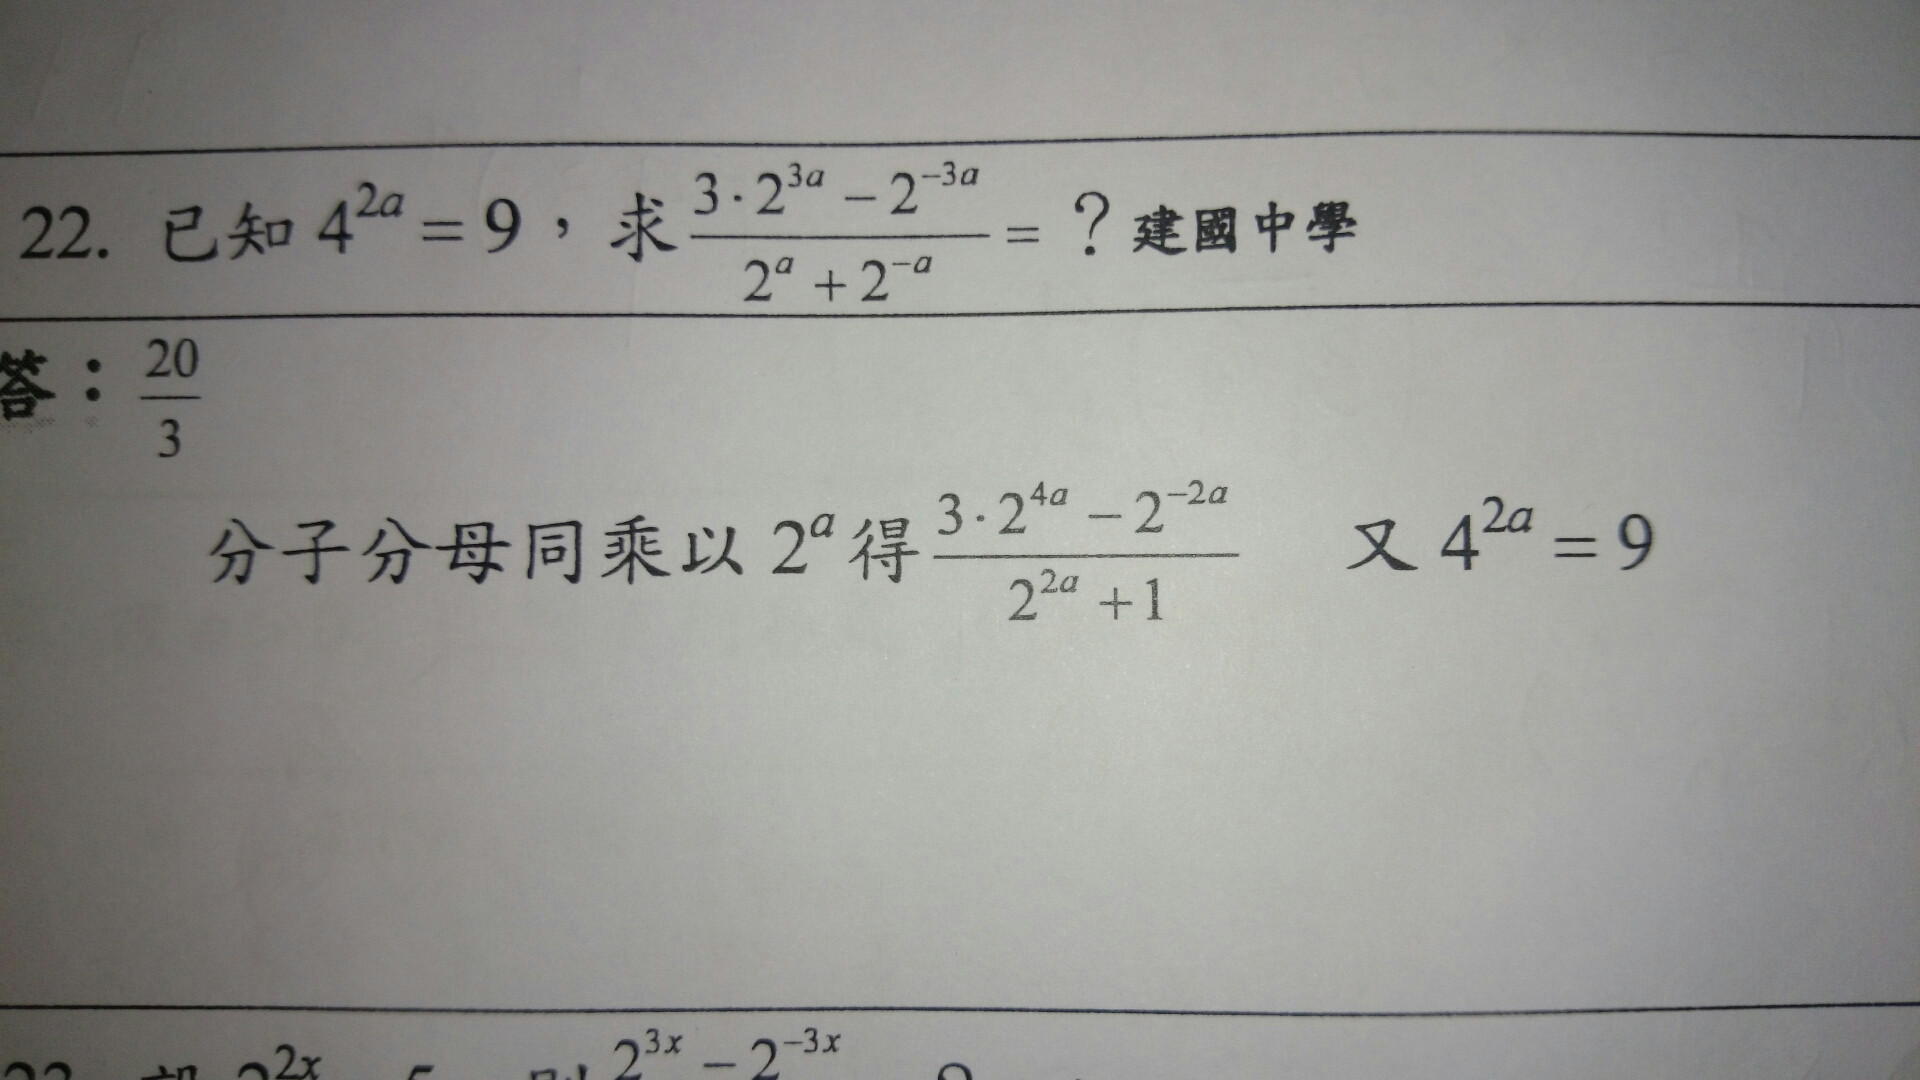 22. 已知 4^{2a} = 9，求 \frac{3·2^{3a} − 2^{−3a}}{2^{a} + 2^{−a}} = ？建國中學
答：\frac{20}{3}
分子分母同乘以 2^{a} 得 \frac{3·2^{4a} − 2^{−2a}}{2^{2a} + 1} 又 4^{2a} = 9
2^{3x} − 2^{−3x}